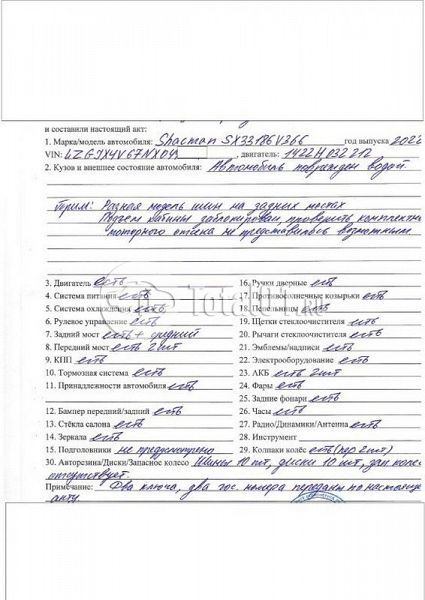 и составили настоящий акт:
1. Марка/модель автомобиля: Shacman SX33186V366 год выпуска 2022
VIN: LZGJX4V67NX04 , двигатель: 1422H032212
2. Кузов и внешнее состояние автомобиля: Автомобиль поврежден водой.
Прим: Разная модель шин на задних мостах
Подъем кабины заблокирован, проверить комплектн
моторного отсека не представилось возможным.
3. Двигатель есть
4. Система питания есть
5. Система охлаждения есть
6. Рулевое управление есть
7. Задний мост есть + средний
8. Передний мост есть 2шт
9. КПП есть
10. Тормозная система есть
11. Принадлежности автомобиля есть
12. Бампер передний/задний есть
13. Стёкла салона есть
14. Зеркала есть
15. Подголовники не предусмотрено
16. Ручки дверные есть
17. Противосолнечные козырьки есть
18. Пепельницы есть
19. Щетки стеклоочистителя есть
20. Рычаги стеклоочистителя есть
21. Эмблемы/надписи есть
22. Электрооборудование есть
23. АКБ есть 2шт
24. Фары есть
25. Задние фонари есть
26. Часы есть
27. Радио/Динамики/Антенна есть
28. Инструмент
29. Колпаки колёс есть (пер 2шт)
30. Авторезина/Диски/Запасное колесо Шины 10 шт, диски 10 шт, зап колес
отсутствует.
Примечание: Два ключа, два гос. номера переданы по настоящ
акту.